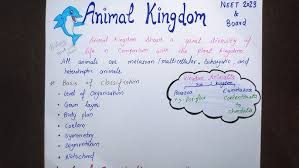 Animal Kingdom
NEET 2023
&
Board
Animal Kingdom shows a great diversity of
life in comparison with the Plant Kingdom.
All animals are metazoan (multicellular, eukaryotic and
heterotrophic animals
Basis of Classification
Level of Organisation
Germ layers
Body plan
Coelom
Symmetry
Segmentation
Notochord
Kingdom Animalia
Parazoa
Eumetazoa
Porifera
Coelenterata
to
chordata